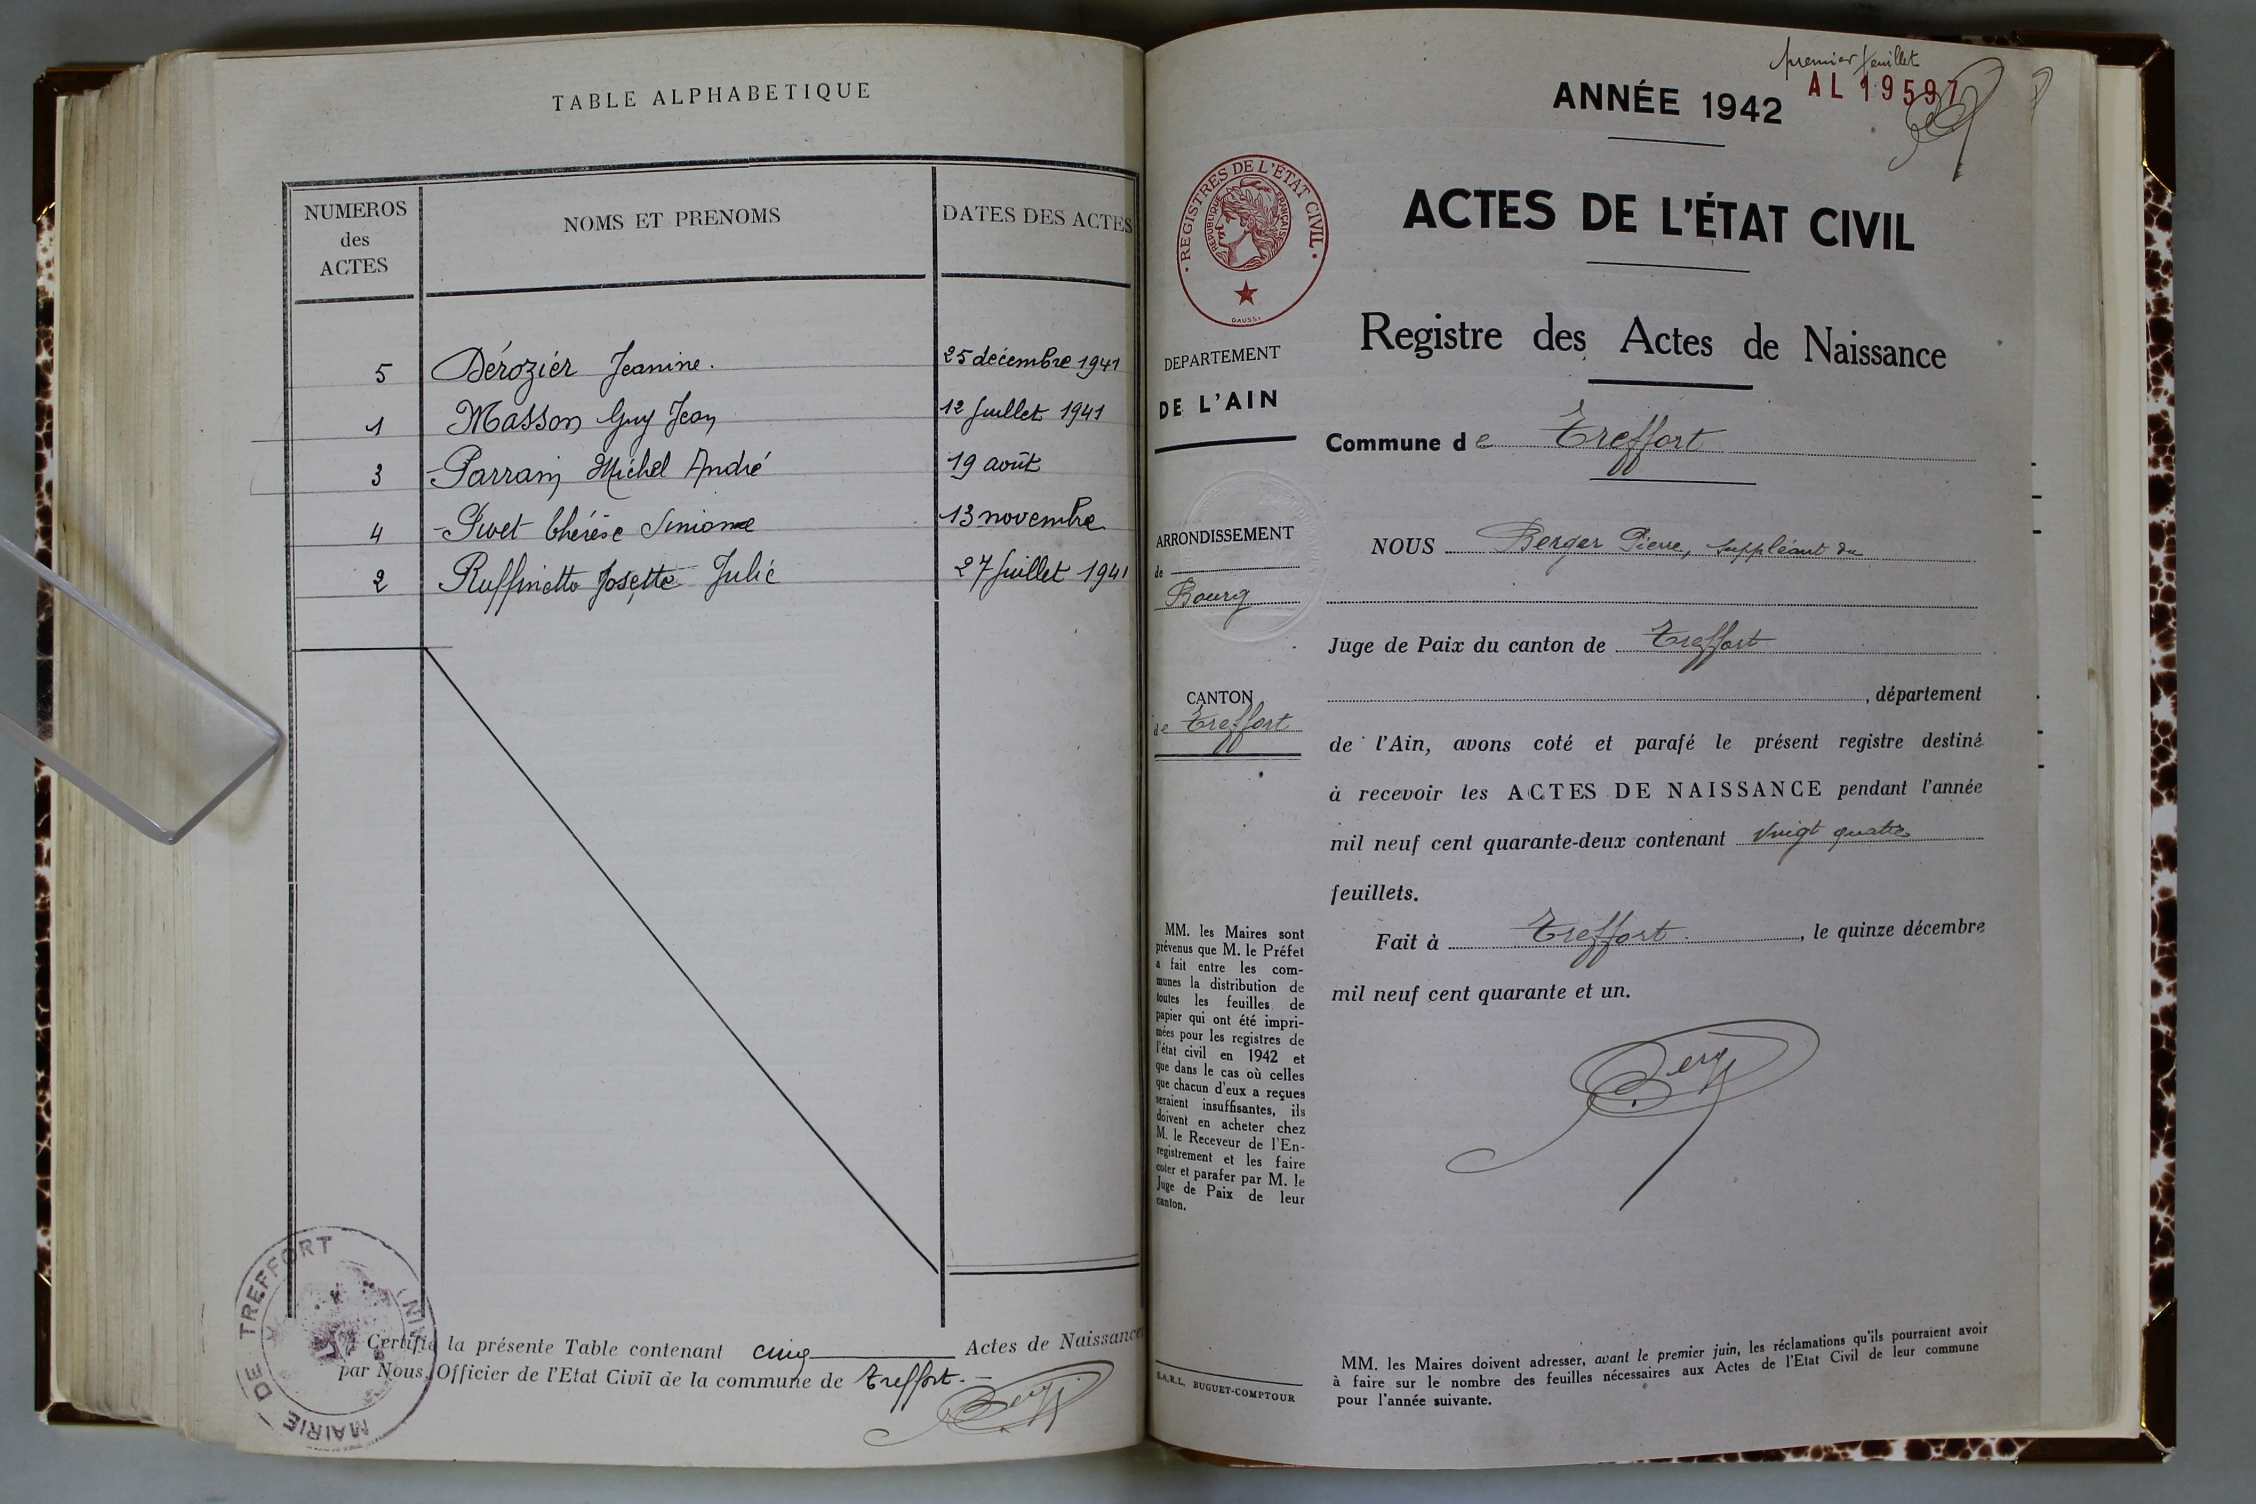 TABLE ALPHABETIQUE
NUMEROS
des
ACTES
NOMS ET PRENOMS
DATES DES ACTES
5 Dérozier Jeanine. 25 décembre 1941
1 Masson Guy Jean 12 Juillet 1941
3 Parrain Michel André 19 août
4 Pivet Thérèse Simone 13 novembre
2 Ruffinetto Josette Julie 27 Juillet 1941
Certifié la présente Table contenant cinq Actes de Naissance
par Nous, Officier de l'Etat Civil de la commune de Treffort.
MAIRIE DE TREFFORT (AIN)
premier feuillet
AL 19597
ANNÉE 1942
ACTES DE L'ÉTAT CIVIL
REGISTRES DE L'ÉTAT CIVIL
REPUBLIQUE FRANÇAISE
DAUSSY
Registre des Actes de Naissance
DEPARTEMENT
DE L'AIN
Commune de Treffort
ARRONDISSEMENT
de
Bourg
NOUS Berger Pierre, suppléant du
Juge de Paix du canton de Treffort
CANTON
de Treffort
, département
de l'Ain, avons coté et parafé le présent registre destiné
à recevoir les ACTES DE NAISSANCE pendant l'année
mil neuf cent quarante-deux contenant vingt quatre
feuillets.
Fait à Treffort, le quinze décembre
mil neuf cent quarante et un.
MM. les Maires sont
prévenus que M. le Préfet
a fait entre les com-
munes la distribution de
toutes les feuilles de
papier qui ont été impri-
mées pour les registres de
l'état civil en 1942 et
que dans le cas où celles
que chacun d'eux a reçues
seraient insuffisantes, ils
doivent en acheter chez
M. le Receveur de l'En-
registrement et les faire
coter et parafer par M. le
Juge de Paix de leur
canton.
S.A.R.L. BUGUET-COMPTOUR
MM. les Maires doivent adresser, avant le premier juin, les réclamations qu'ils pourraient avoir
à faire sur le nombre des feuilles nécessaires aux Actes de l'Etat Civil de leur commune
pour l'année suivante.